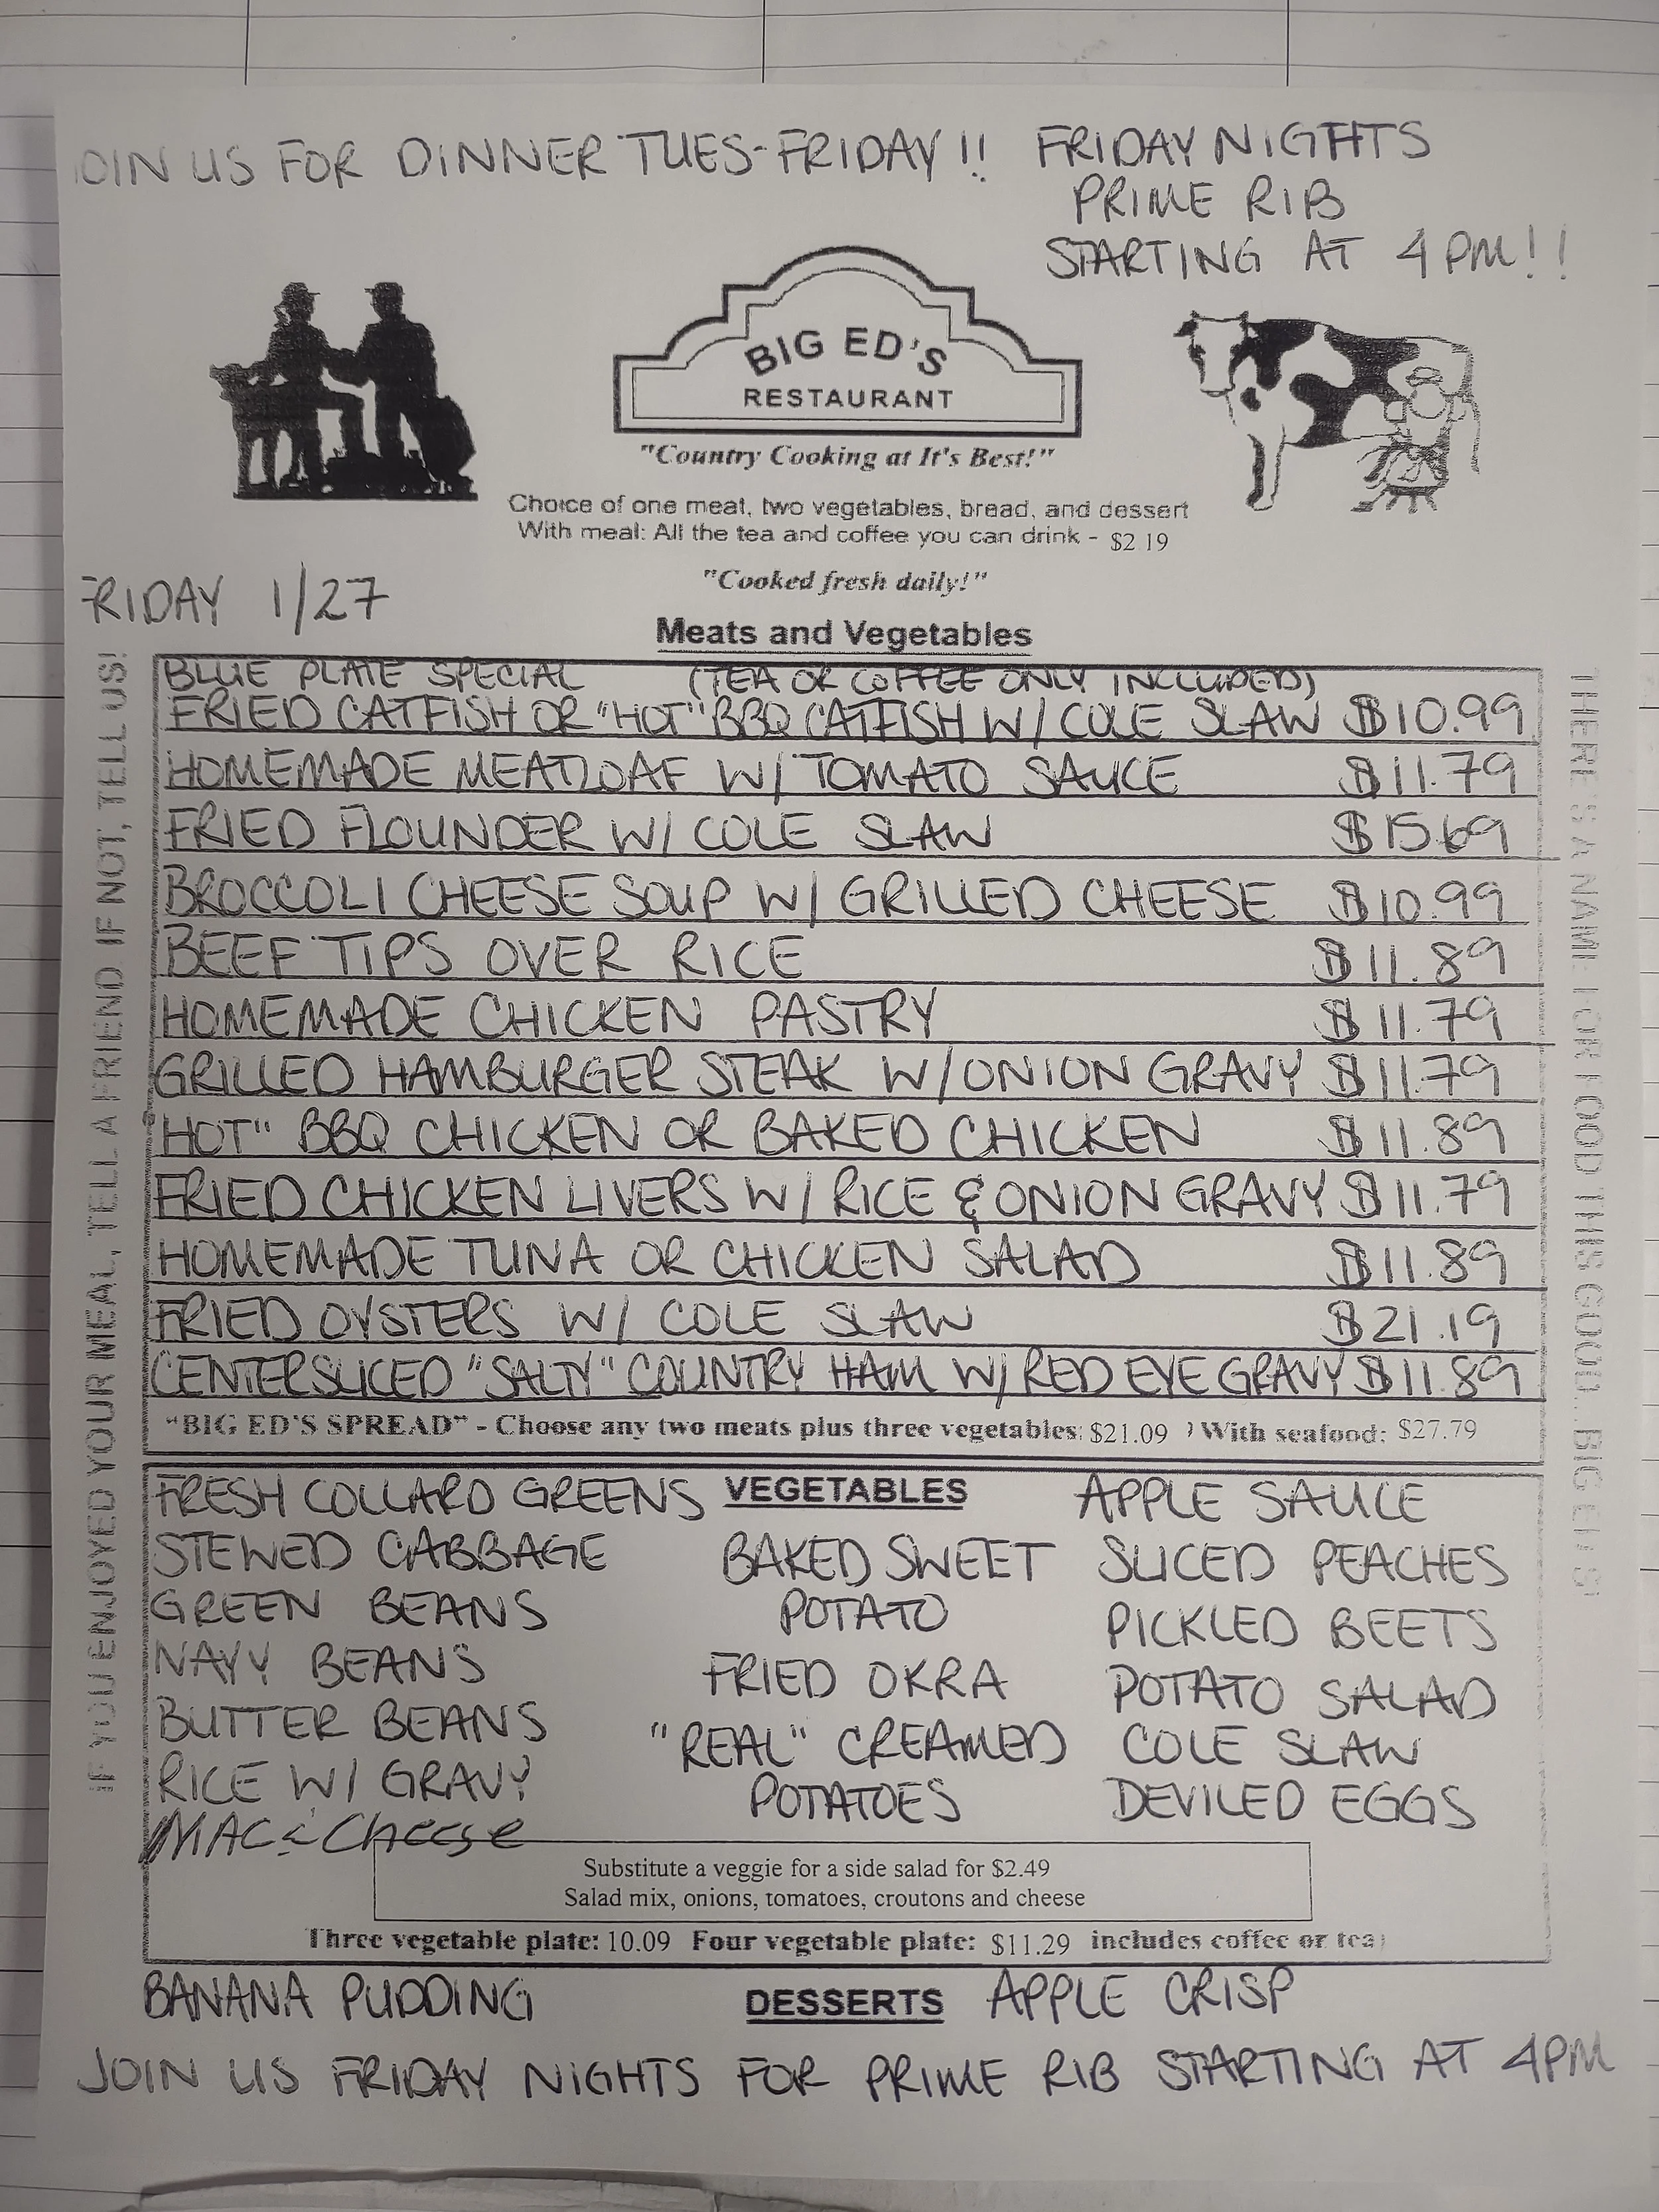 JOIN US FOR DINNER TUES-FRIDAY!! FRIDAY NIGHTS
PRIME RIB
STARTING AT 4PM!!
BIG ED'S
RESTAURANT
"Country Cooking at It's Best!"
Choice of one meat, two vegetables, bread, and dessert
With meal: All the tea and coffee you can drink - $2 19
"Cooked fresh daily!"
FRIDAY 1/27
Meats and Vegetables
IF YOU ENJOYED YOUR MEAL, TELL A FRIEND. IF NOT, TELL US!
THERE'S A NAME FOR FOOD THIS GOOD... BIG ED'S!
BLUE PLATE SPECIAL (TEA OR COFFEE ONLY INCLUDED)
FRIED CATFISH OR "HOT" BBQ CATFISH W/ COLE SLAW $10.99
HOMEMADE MEATLOAF W/ TOMATO SAUCE $11.79
FRIED FLOUNDER W/ COLE SLAW $15.69
BROCCOLI CHEESE SOUP W/ GRILLED CHEESE $10.99
BEEF TIPS OVER RICE $11.89
HOMEMADE CHICKEN PASTRY $11.79
GRILLED HAMBURGER STEAK W/ONION GRAVY $11.79
"HOT" BBQ CHICKEN OR BAKED CHICKEN $11.89
FRIED CHICKEN LIVERS W/ RICE & ONION GRAVY $11.79
HOMEMADE TUNA OR CHICKEN SALAD $11.89
FRIED OYSTERS W/ COLE SLAW $21.19
CENTERSLICED "SALTY" COUNTRY HAM W/ RED EYE GRAVY $11.89
"BIG ED'S SPREAD" - Choose any two meats plus three vegetables: $21.09 ) With seafood: $27.79
FRESH COLLARD GREENS VEGETABLES APPLE SAUCE
STEWED CABBAGE BAKED SWEET SLICED PEACHES
GREEN BEANS POTATO PICKLED BEETS
NAVY BEANS FRIED OKRA POTATO SALAD
BUTTER BEANS "REAL" CREAMED COLE SLAW
RICE W/ GRAVY POTATOES DEVILED EGGS
MAC & Cheese
Substitute a veggie for a side salad for $2.49
Salad mix, onions, tomatoes, croutons and cheese
Three vegetable plate: 10.09 Four vegetable plate: $11.29 includes coffee or tea)
BANANA PUDDING DESSERTS APPLE CRISP
JOIN US FRIDAY NIGHTS FOR PRIME RIB STARTING AT 4PM